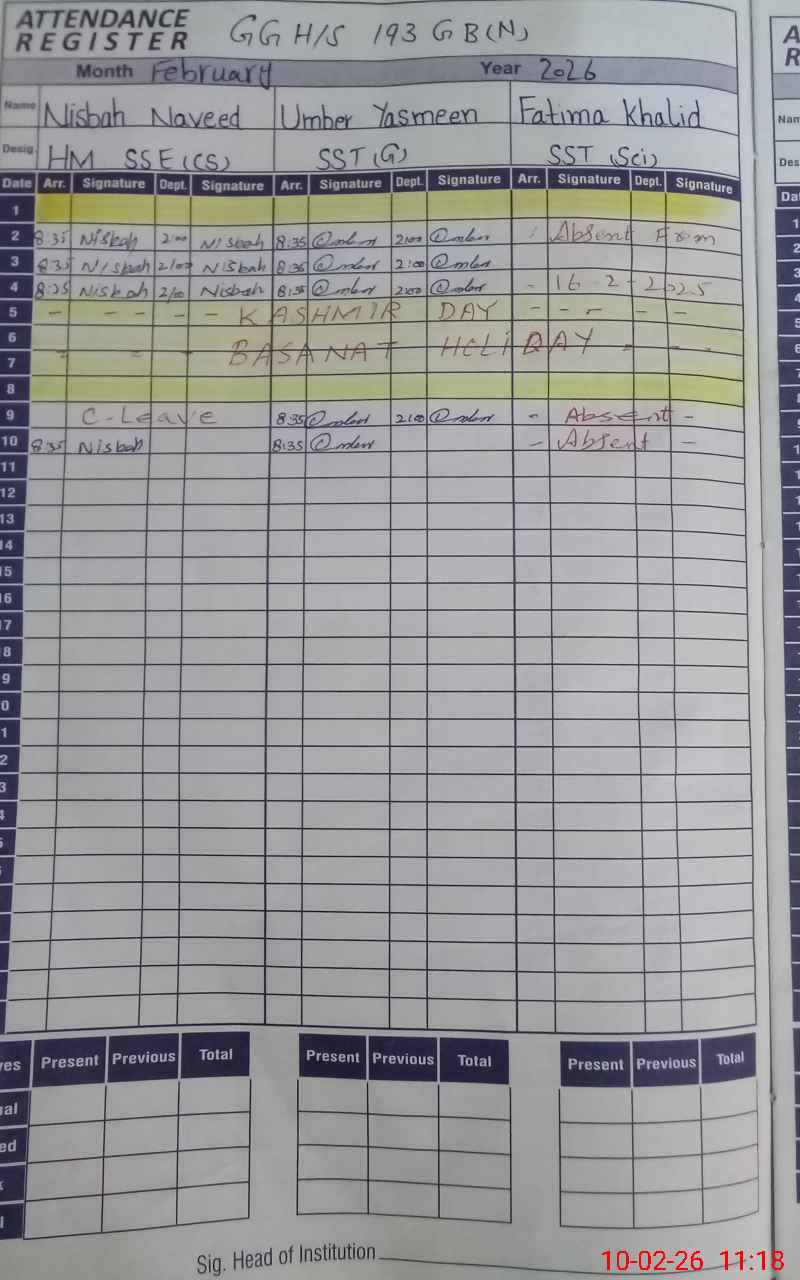 ATTENDANCE REGISTER GGH/S 193 GB(N)
Month February Year 2026
Name Nisbah Naveed Umber Yasmeen Fatima Khalid
Desig. HM SSE(CS) SST(G) SST (Sci)
Date Arr. Signature Dept. Signature Arr. Signature Dept. Signature Arr. Signature Dept. Signature
1
2 8:35 Nisbah 2:00 Nisbah 8:35 2:00 Absent From
3 8:35 Nisbah 2/00 Nisbah 8:35 2:00
4 8:35 Nisbah 2/00 Nisbah 8:35 2:00 - 16-2-2025
5 - - - - - KASHMIR DAY - - - - -
6
7 - - - BASANAT HOLIDAY - - -
8
9 C-Leave 8:35 2:00 - Absent -
10 8:35 Nisbah 8:35 - Absent -
11
12
13
14
15
16
17
8
9
0
1
2
3
4
5
ves Present Previous Total Present Previous Total Present Previous Total
ual
ed
k
l
Sig. Head of Institution
10-02-26 11:18
A
R
Nam
Des
Dat
1
2
3
4
5
6